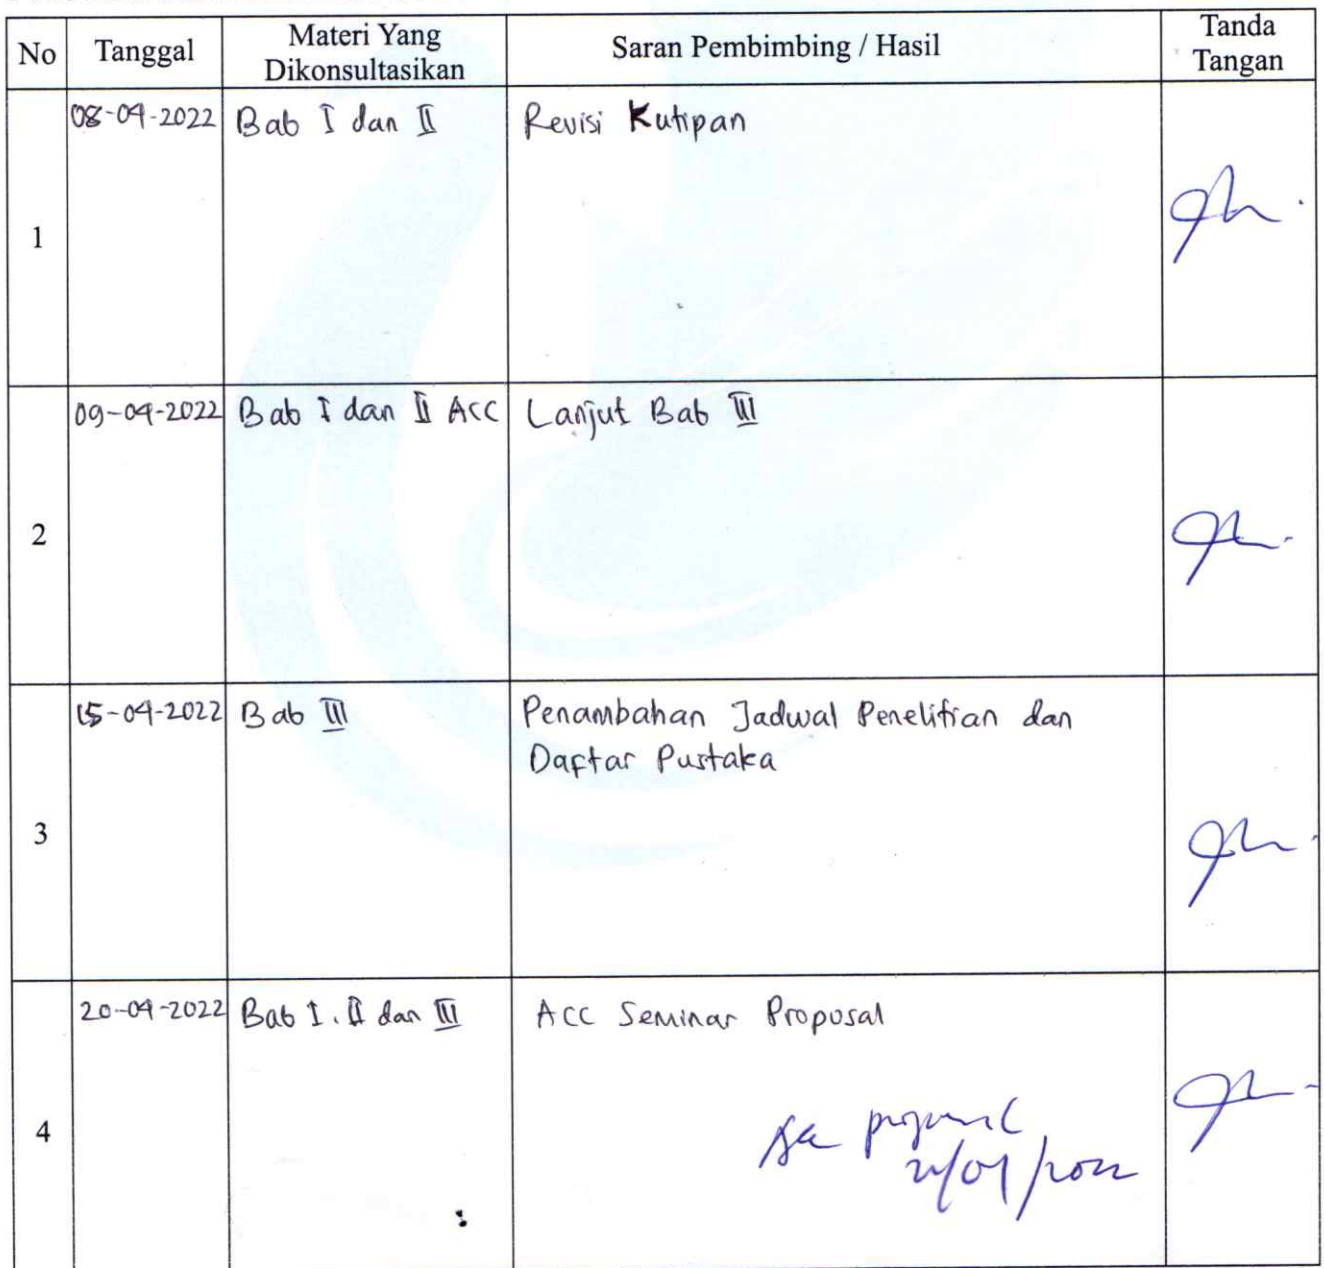 No Tanggal Materi Yang Dikonsultasikan Saran Pembimbing / Hasil Tanda Tangan
1 08-04-2022 Bab I dan II Revisi Kutipan
2 09-04-2022 Bab I dan II ACC Lanjut Bab III
3 15-04-2022 Bab III Penambahan Jadwal Penelitian dan
Daftar Pustaka
4 20-04-2022 Bab I. II dan III ACC Seminar Proposal